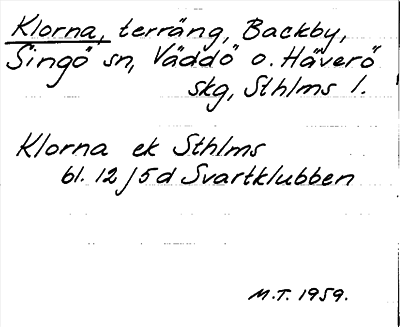 Klorna, terräng, Backby,
Singö sn, Väddö o. Häverö
skg, Sthlms l.
Klorna ek Sthlms
bl. 12 j 5 d Svartklubben
M.T. 1959.